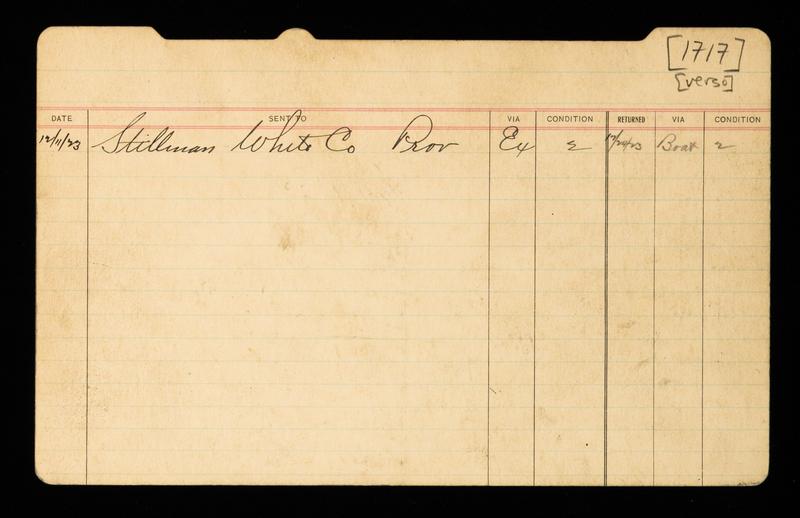 [1717]
[verso]
DATE SENT TO VIA CONDITION RETURNED VIA CONDITION
12/11/23 Stillman White Co Prov Ex 2 12/24/23 Boat 2